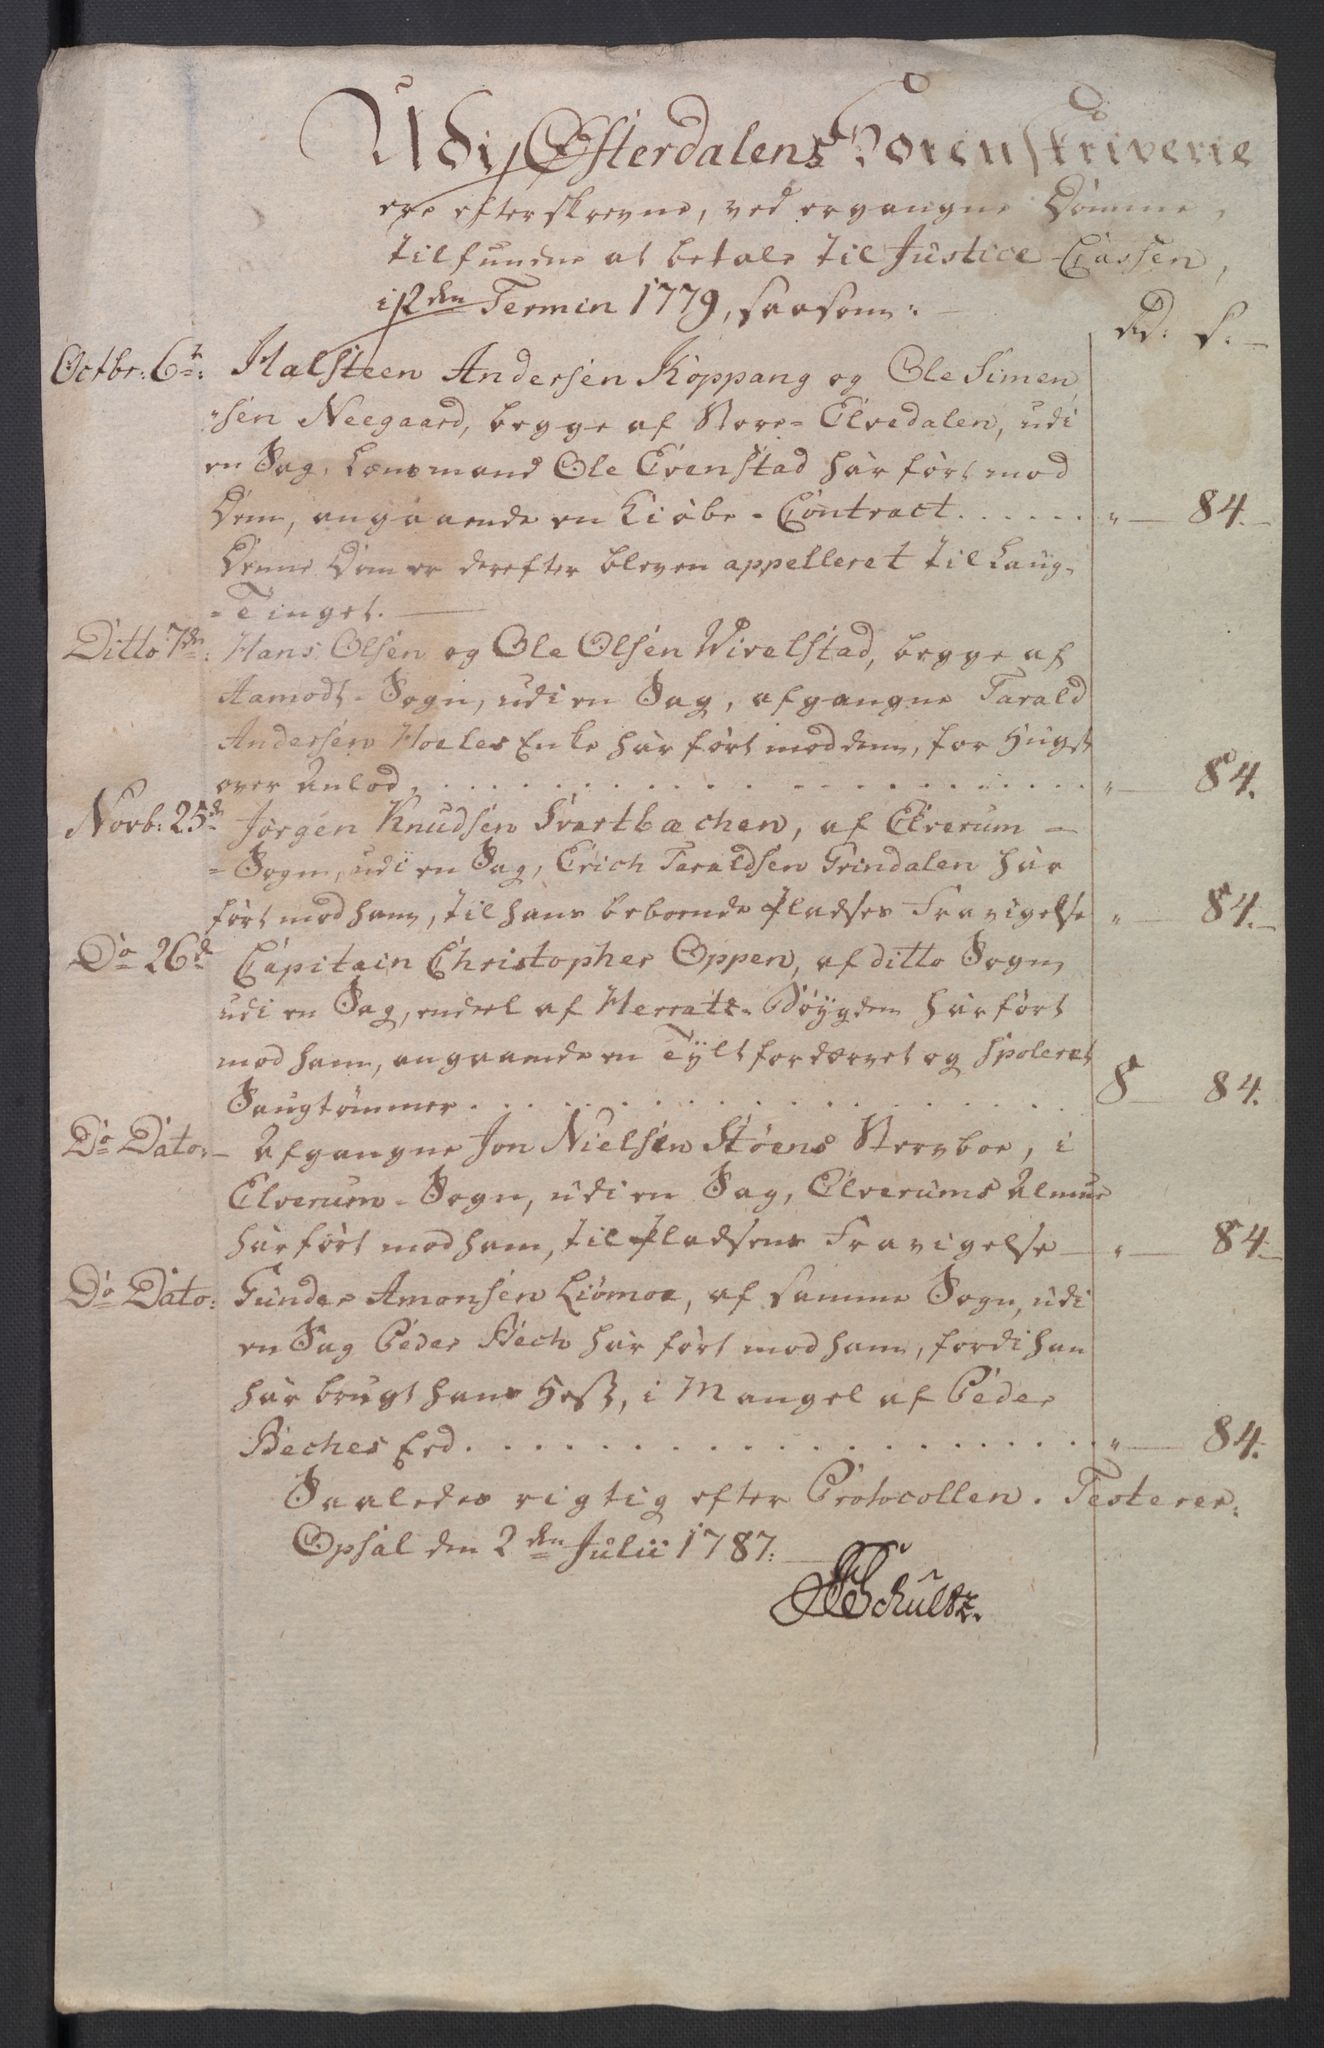 Udi Østerdalens Sorenskriverie
ere efterskrevne, ved ergangne Domme,
tilfundne at betale til Justice-Cassen,
2den Termin 1779, saasom:
Rd: S:
Octbr: 6te: Halsteen Andersen Koppang og Ole Simen
sen Neegaard, begge af Store-Elvedalen, udi
en Sag, Lensmand Ole Evenstad har ført mod
Dem, angaaende en Kiøbe-Contract. . . . . . " 84.
Denne Dom er derefter bleven appelleret til Laug-
Tinget.
Ditto 7de: Hans Olsen og Ole Olsen Wirelstad, begge af
Aamodt-Sogn, udi en Sag, afgangne Tarald
Andersen Hoeles Enke har ført mod dem, for Hugst
over Anlod . . . . . . " 84.
Novb: 25de Jørgen Knudsen Svartbachen, af Elverum
-Sogn, udi en Sag, Erich Taraldsen Grindalen har
ført mod ham, til hans beboende Pladses Fravigelse " 84.
Do 26de Capitain Christopher Oppen, af ditto Sogn,
udi en Sag, endeel af Herrats-Bøygden har ført
mod ham, angaaende en Tylt fordærvet og Spoleret
Saugtømmer . . . . . . 8 84.
Do Dato: Afgangne Jon Nielsen Støens Stervboe, i
Elverum-Sogn, udi en Sag, Elverums Almue
har ført mod ham, til Pladsens Fravigelse " 84.
Do Dato: Gunder Amonsen Liømoe, af samme Sogn, udi
en Sag Peder Bech har ført mod ham, fordi han
har brugt hans Hest, i Mangel af Peder
Beches Eed. . . . . . " 84.
Saaledes rigtig efter Protocollen. Testerer.
Opsal den 2den Julii 1787.
Schultz.